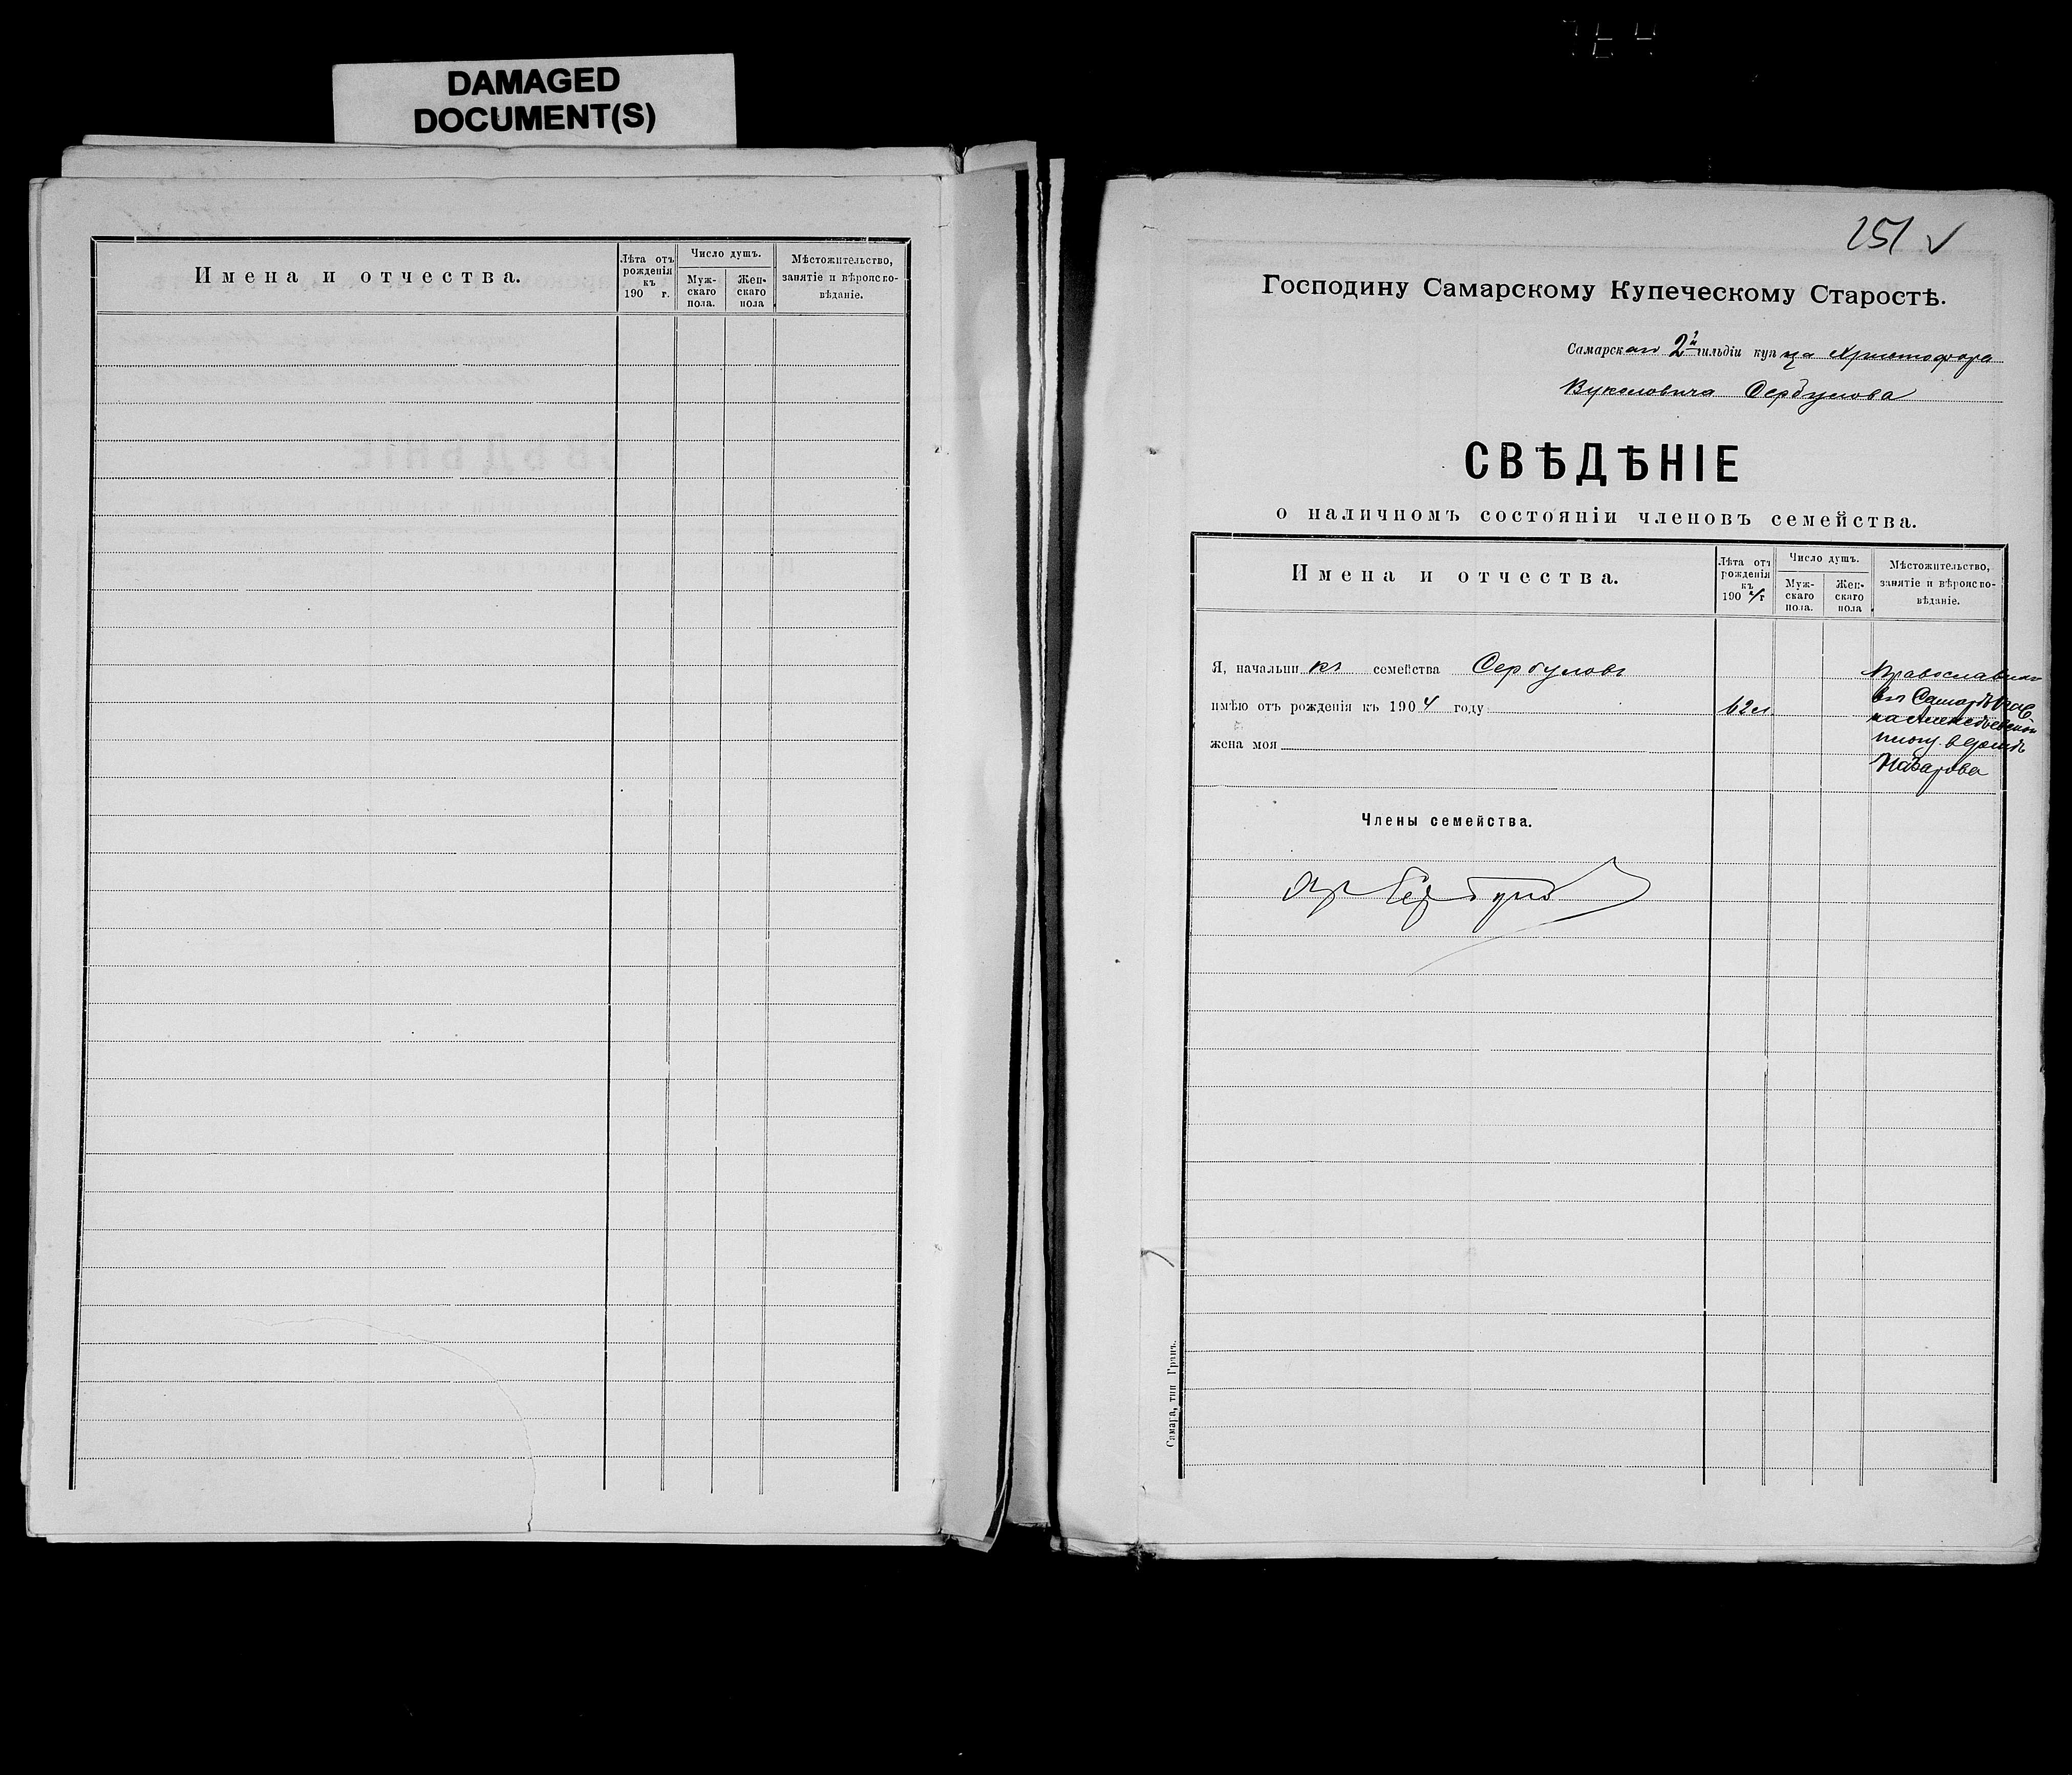 DAMAGED
DOCUMENT(S)
Имена и отчества.
Лѣта отъ рожденія къ 190 г.
Число душъ.
Муж-
скаго
пола.
Жен-
скаго
пола
Мѣстожительство,
занятіе и вѣроиспо-
вѣданіе.
251 ✓
Господину Самарскому Купеческому Старостѣ.
Самарскаго 2й гильдіи купца Христофора
Вуколовича Сербулова
СВѢДѢНІЕ
о наличномъ состояніи членовъ семейства.
Имена и отчества.
Лѣта отъ
рожденія
къ
190 4 г
Число душъ.
Муж-
скаго
пола.
Жен-
скаго
пола
Мѣстожительство,
занятіе и вѣроиспо-
вѣданіе.
Я, начальникъ семейства Сербуловъ
Православнаго
имѣю отъ рожденія къ 1904 году 62 л.
въ Самарѣ
на Алексѣевской
жена моя
площ. в домѣ
Назарова
Члены семейства.
Хр Сербулов
Самара, тип. Гранъ.